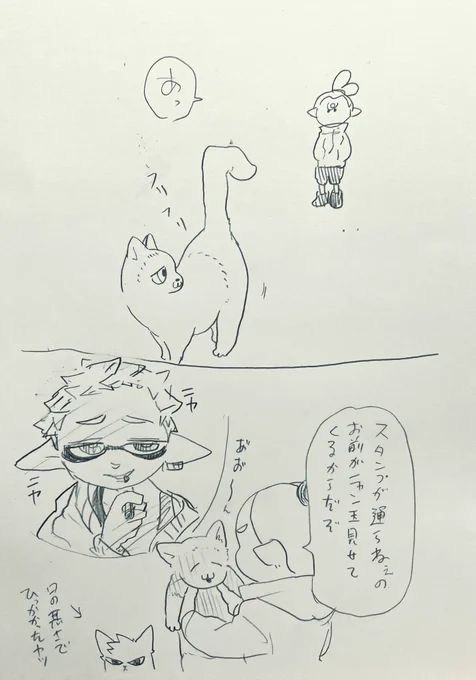 あっ
フリ
フリ
スタンプが通らねぇの
お前がニャン玉見せて
くるからだぞ
あ゛お〜ん
ニヤ
ニヤ
目の悪さで
ひっかかったヤツ